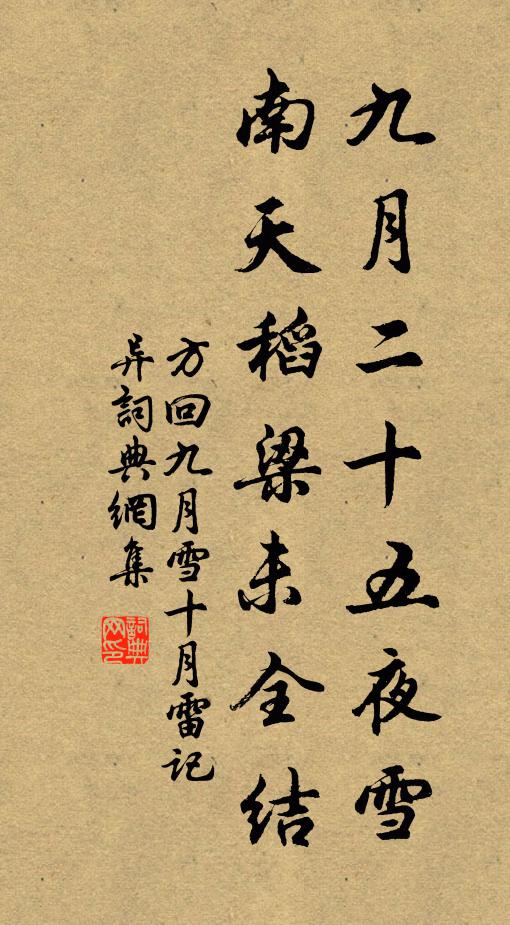 九月二十五夜雪
南天稻梁未全结
方回九月雪十月雷记
异词典網集
詞典网印